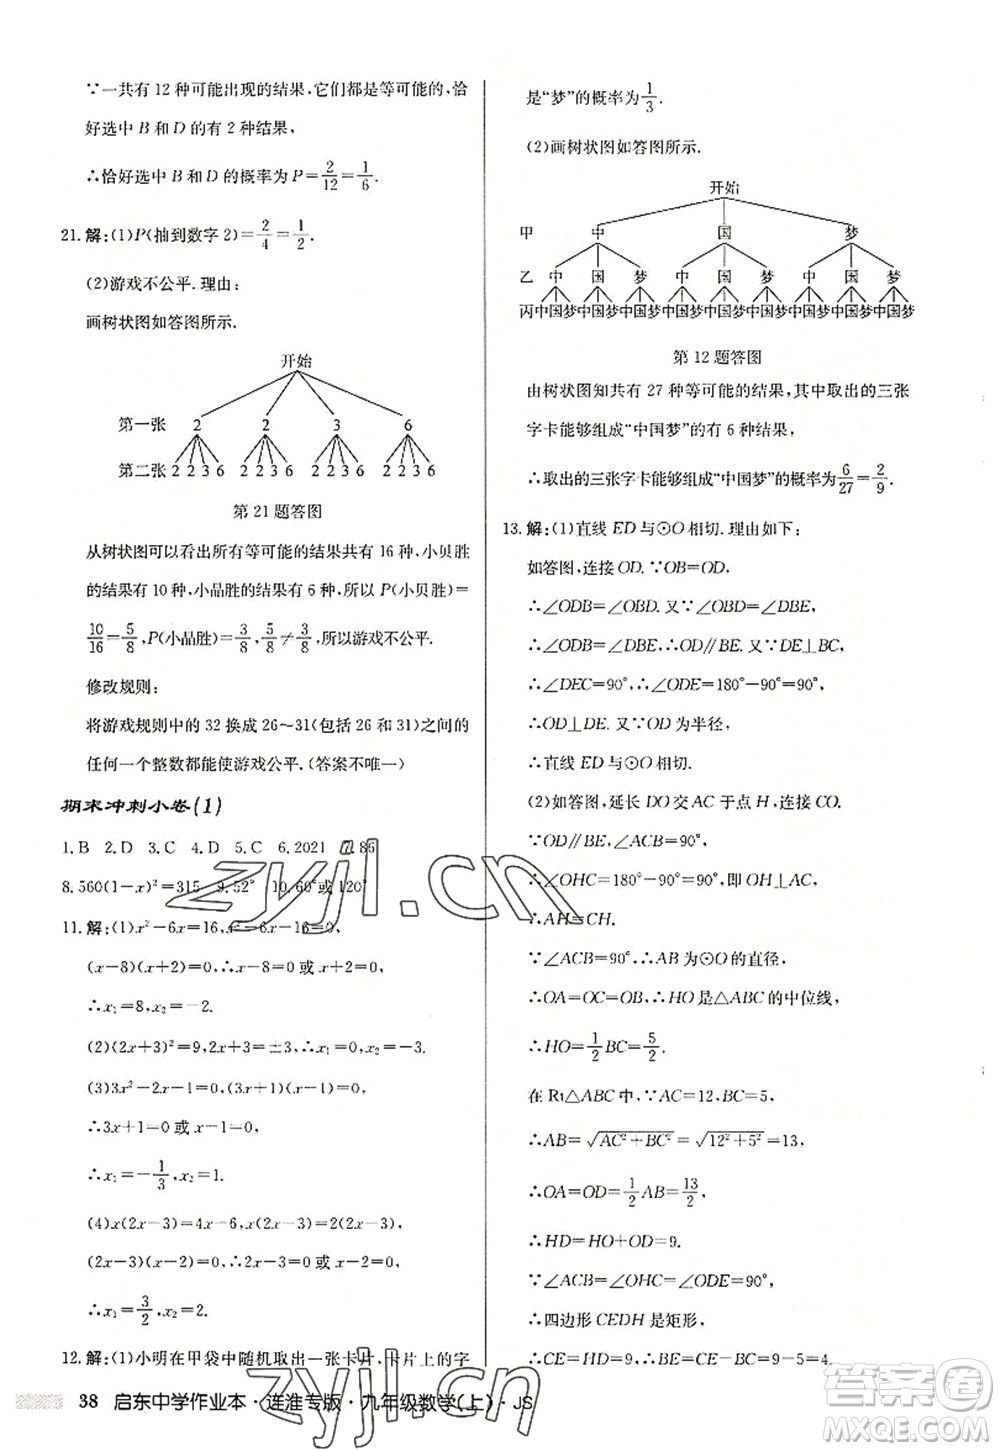 ∵一共有12种可能出现的结果，它们都是等可能的，恰
好选中B和D的有2种结果，
∴恰好选中B和D的概率为P=2/12=1/6.
21.解:(1)P(抽到数字2)=2/4=1/2.
(2)游戏不公平.理由:
画树状图如答图所示.
开始
第一张 2 2 3 6
第二张 2 2 3 6 2 2 3 6 2 2 3 6 2 2 3 6
第21题答图
从树状图可以看出所有等可能的结果共有16种，小贝胜
的结果有10种，小品胜的结果有6种，所以P(小贝胜)=
10/16=5/8，P(小品胜)=3/8，5/8≠3/8，所以游戏不公平.
修改规则:
将游戏规则中的32换成26～31(包括26和31)之间的
任何一个整数都能使游戏公平.(答案不唯一)
期末冲刺小卷(1)
1.B 2.D 3.C 4.D 5.C 6.2021 7.86
8.560(1-x)²=315 9.52° 10.60°或120°
11.解:(1)x²-6x=16，x²-6x-16=0，
(x-8)(x+2)=0，∴x-8=0或x+2=0，
∴x₁=8，x₂=-2.
(2)(2x+3)²=9，∴2x+3=±3，∴x₁=0，x₂=-3.
(3)3x²-2x-1=0，∴(3x+1)(x-1)=0，
∴3x+1=0或x-1=0，
∴x₁=-1/3，x₂=1.
(4)x(2x-3)=4x-6，∴(2x-3)(x-2)=0，
(2x-3)(x-2)=0，∴2x-3=0或x-2=0，
∴x₁=3/2，x₂=2.
12.解:(1)小明在甲袋中随机取出一张卡片，卡片上的字
是“梦”的概率为1/3.
(2)画树状图如答图所示.
开始
甲 中 国 梦
乙 中 国 梦 中 国 梦 中 国 梦
丙 中国梦 中国梦 中国梦 中国梦 中国梦 中国梦 中国梦 中国梦 中国梦
第12题答图
由树状图知共有27种等可能的结果，其中取出的三张
字卡能够组成“中国梦”的有6种结果，
∴取出的三张字卡能够组成“中国梦”的概率为6/27=2/9.
13.解:(1)直线ED与⊙O相切.理由如下:
如答图，连接OD.∵OB=OD，
∴∠ODB=∠OBD.又∵∠OBD=∠DBE，
∴∠ODB=∠DBE，∴OD∥BE.又∵DE⊥BC，
∴∠DEC=90°，∴∠ODE=180°-90°=90°，
∴OD⊥DE.又∵OD为半径，
∴直线ED与⊙O相切.
(2)如答图，延长DO交AC于点H，连接CO.
∵OD∥BE，∠ACB=90°，
∴∠OHC=180°-90°=90°，即OH⊥AC，
∴AH=CH.
∵∠ACB=90°，∴AB为⊙O的直径，
∴OA=OC=OB，∴HO是△ABC的中位线，
∴HO=1/2BC=5/2.
在Rt△ABC中，∵AC=12，BC=5，
∴AB=√(AC²+BC²)=√(12²+5²)=13，
∴OA=OD=1/2AB=13/2，
∴HD=HO+OD=9.
∵∠ACB=∠CED=∠ODE=90°，
∴四边形CEDH是矩形，
∴CE=HD=9，∴BE=CE-BC=9-5=4.
38 启东中学作业本·连淮专版·九年级数学(上)·JS
zyjl.cn
zyjl.cn